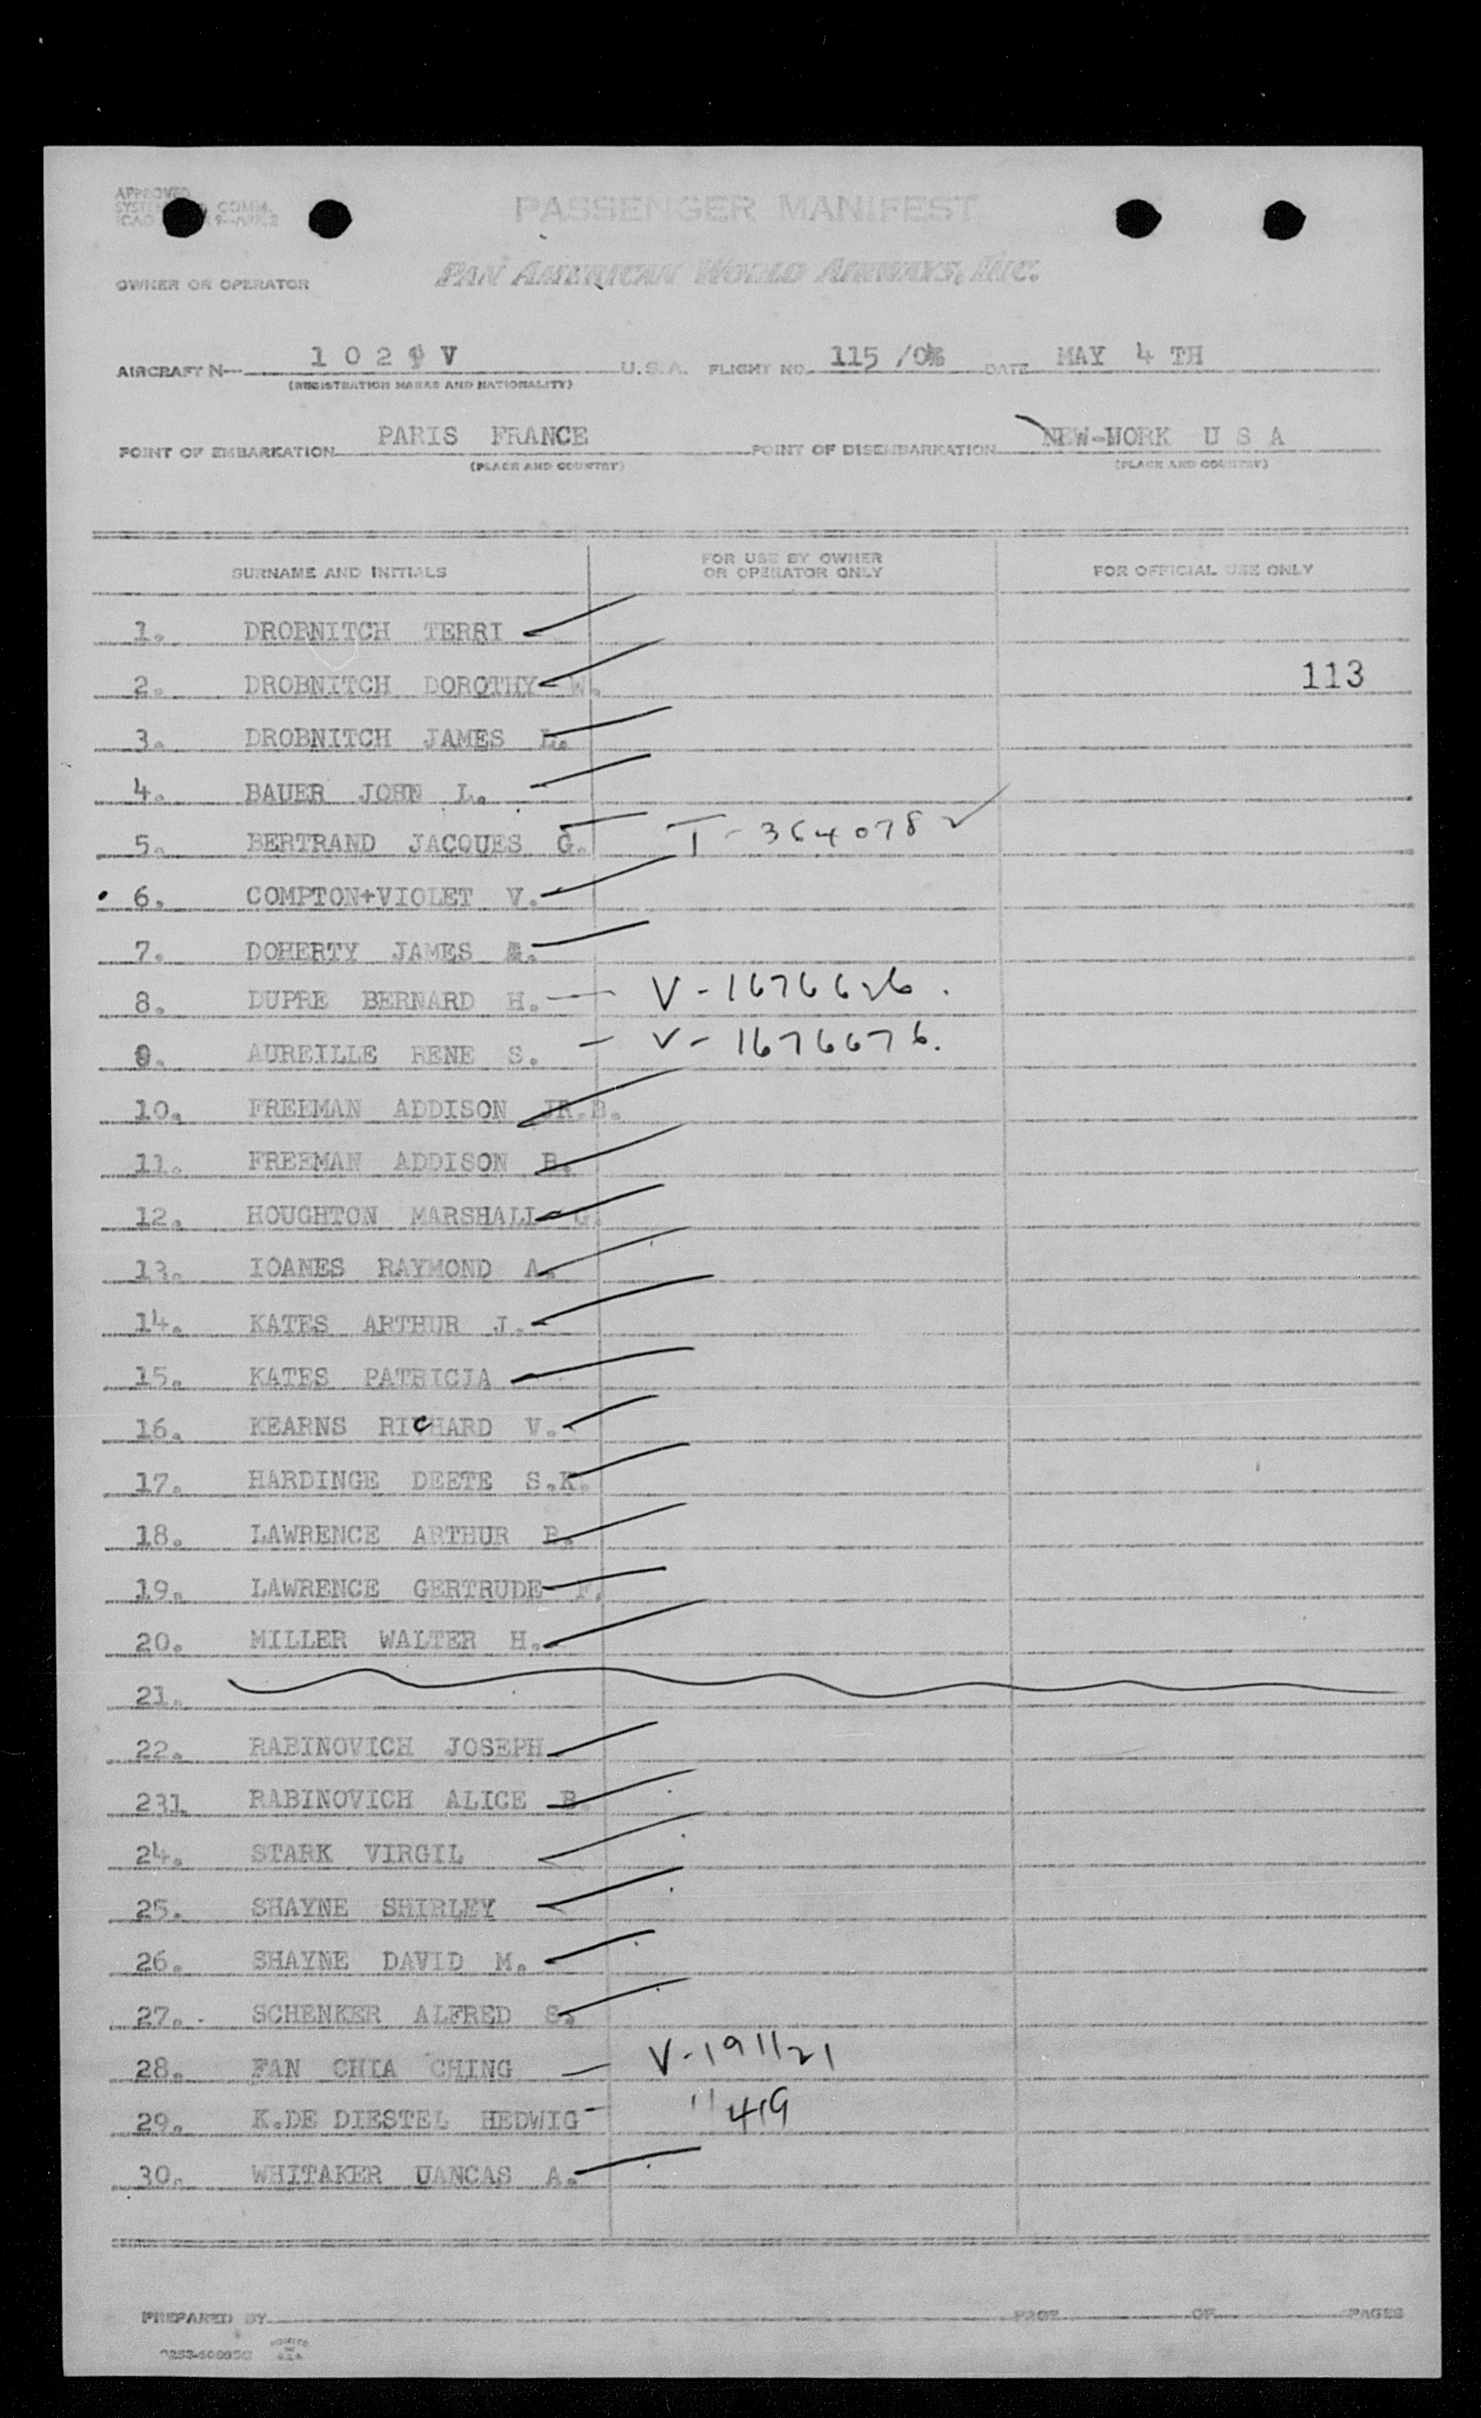 APPROVED
SYSTEM COMM.
ICAO 9-ANNEX 9
PASSENGER MANIFEST
PAN AMERICAN WORLD AIRWAYS, INC.
OWNER OR OPERATOR
AIRCRAFT N- 1 0 2 V U.S.A. FLIGHT NO. 115 /0 DATE MAY 4 TH
(REGISTRATION MARKS AND NATIONALITY)
POINT OF EMBARKATION PARIS FRANCE POINT OF DISEMBARKATION NEW-WORK U S A
(PLACE AND COUNTRY) (PLACE AND COUNTRY)
SURNAME AND INITIALS FOR USE BY OWNER OR OPERATOR ONLY FOR OFFICIAL USE ONLY
1. DROBNITCH TERRI
2. DROBNITCH DOROTHY W. 113
3. DROBNITCH JAMES L.
4. BAUER JOHN L.
5. BERTRAND JACQUES G. T-3640782
6. COMPTON+VIOLET V.
7. DOHERTY JAMES
8. DUPRE BERNARD H. V-1676626.
9. AUREILLE RENE S. V-1676676.
10. FREEMAN ADDISON JR.B.
11. FREEMAN ADDISON B.
12. HOUGHTON MARSHALL G.
13. IOANES RAYMOND A.
14. KATES ARTHUR J.
15. KATES PATRICIA
16. KEARNS RICHARD V.
17. HARDINGE DEETE S.K.
18. LAWRENCE ARTHUR B.
19. LAWRENCE GERTRUDE F.
20. MILLER WALTER H.
21.
22. RABINOVICH JOSEPH
231 RABINOVICH ALICE B.
24. STARK VIRGIL
25. SHAYNE SHIRLEY
26. SHAYNE DAVID M.
27. SCHENKER ALFRED S.
28. FAN CHIA CHING V-191121
29. K.DE DIESTEL HEDWIG " 419
30. WHITAKER UANCAS A.
PREPARED BY PAGE OF PAGES